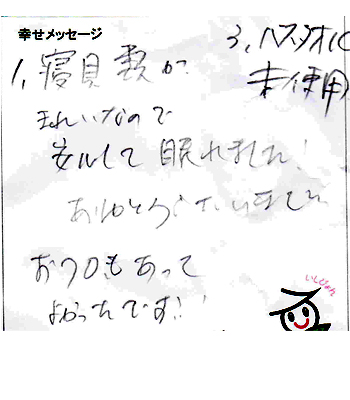 幸せメッセージ
1, 寝具類が
きれいなので
安心して眠れました!
ありがとうございました
おフロもあって
よかったです!!
3, バスタオル
未使用
いしぴょん